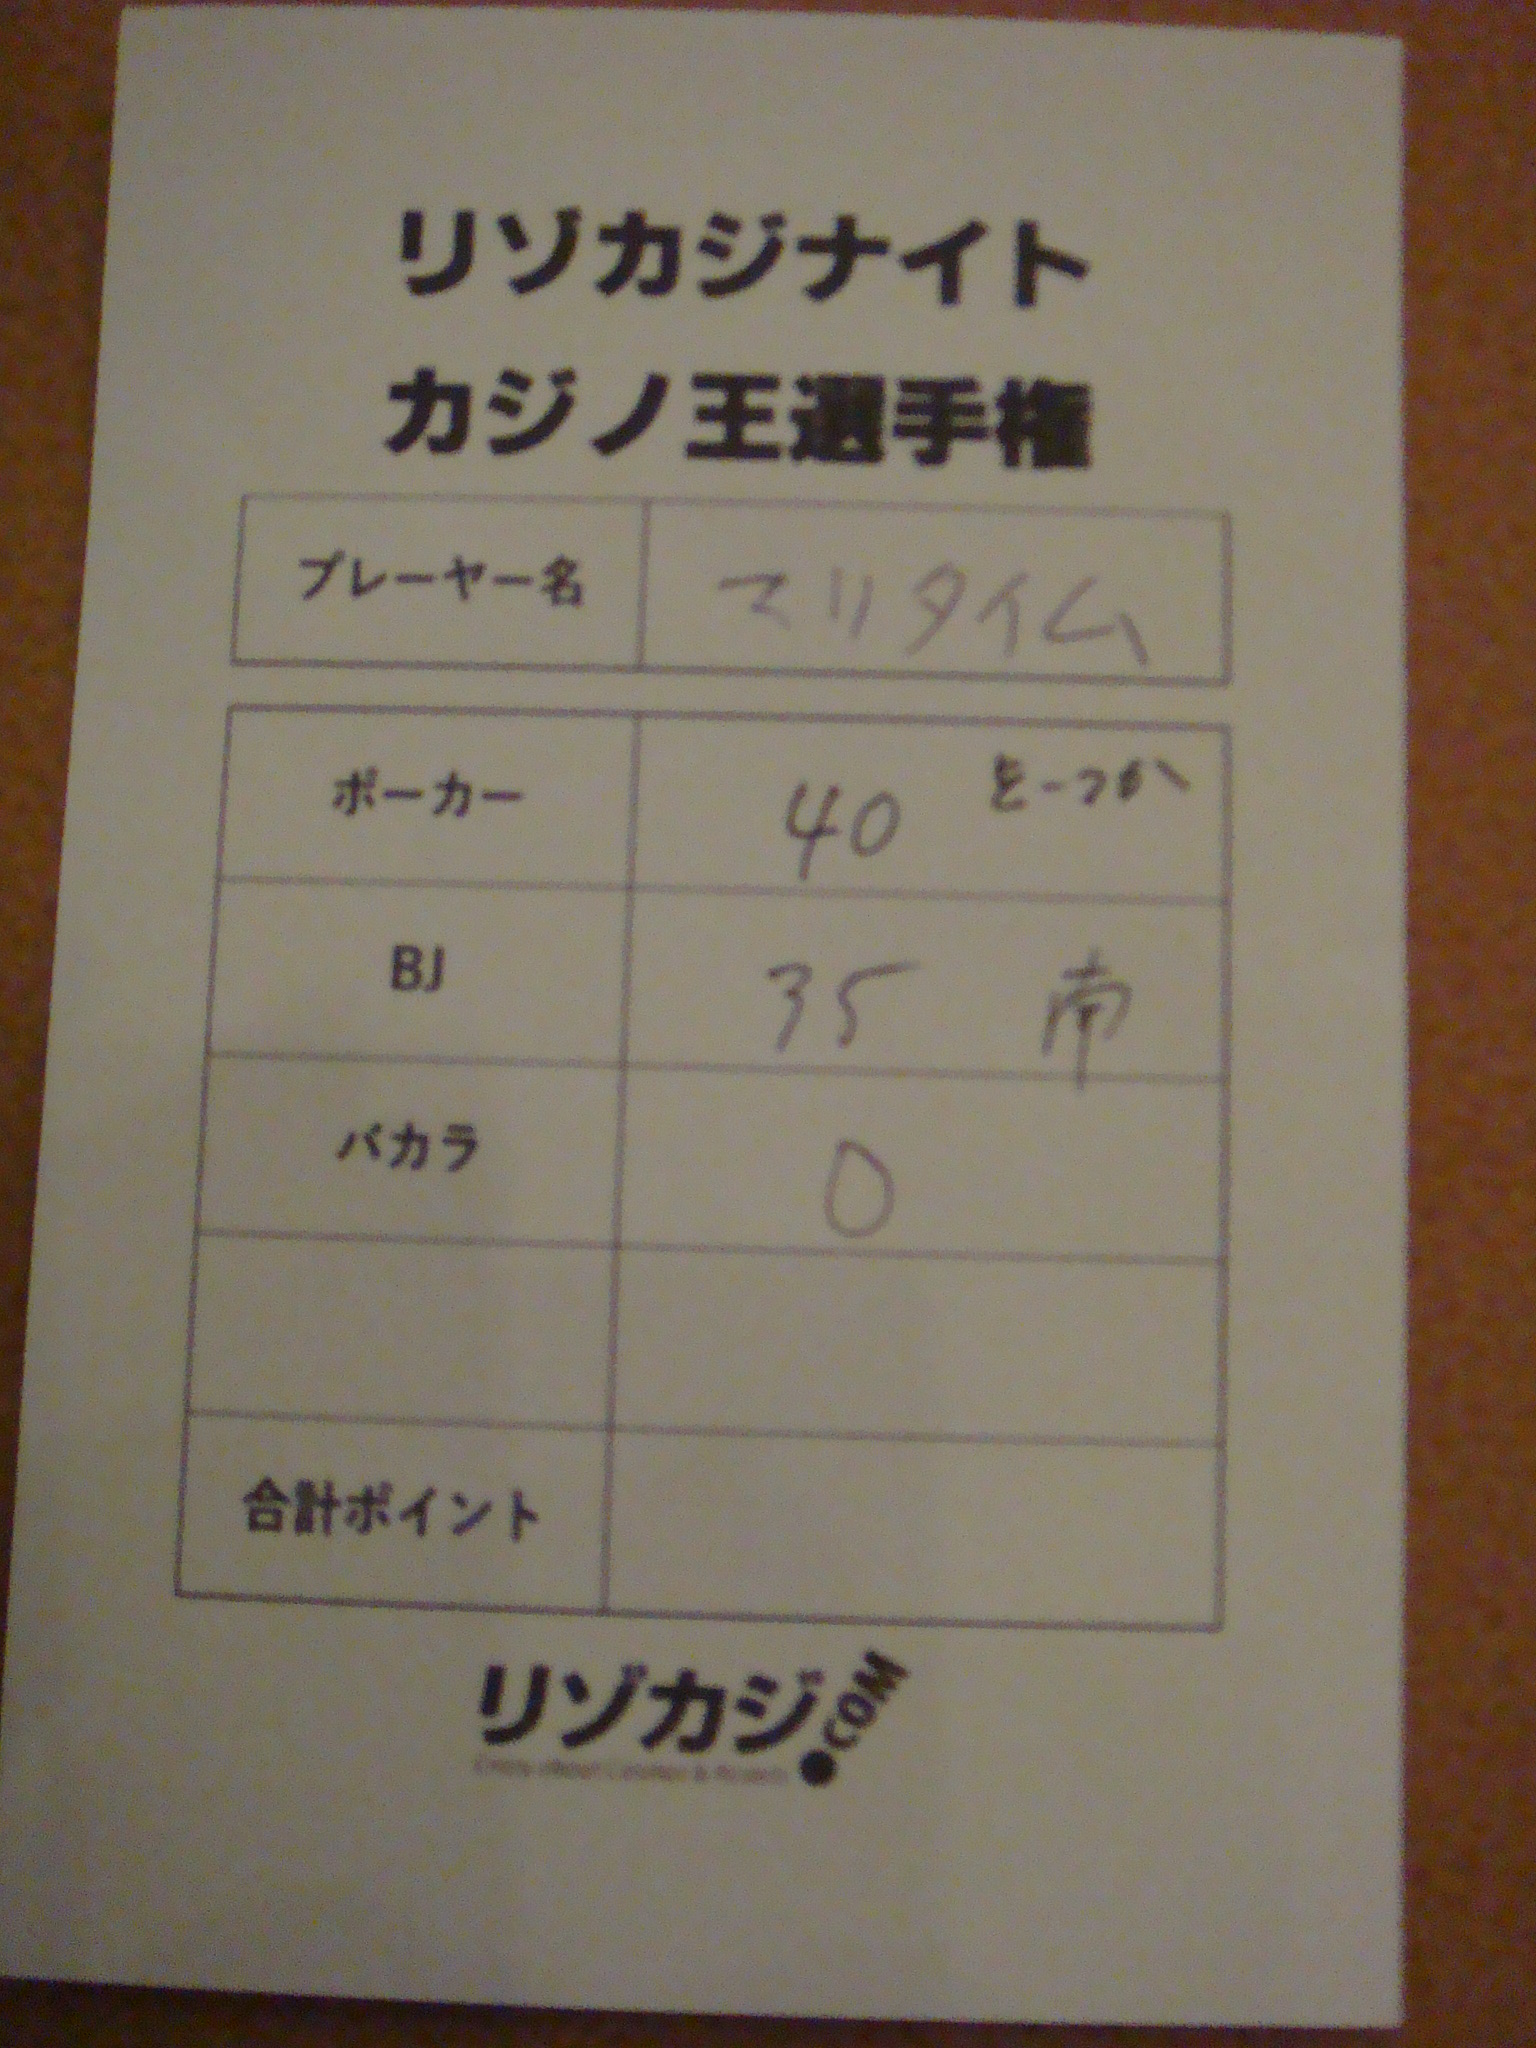 リゾカジナイト
カジノ王選手権
プレーヤー名 マリタイム
ポーカー 40
BJ 35 南
バカラ 0
合計ポイント
リゾカジ.COM